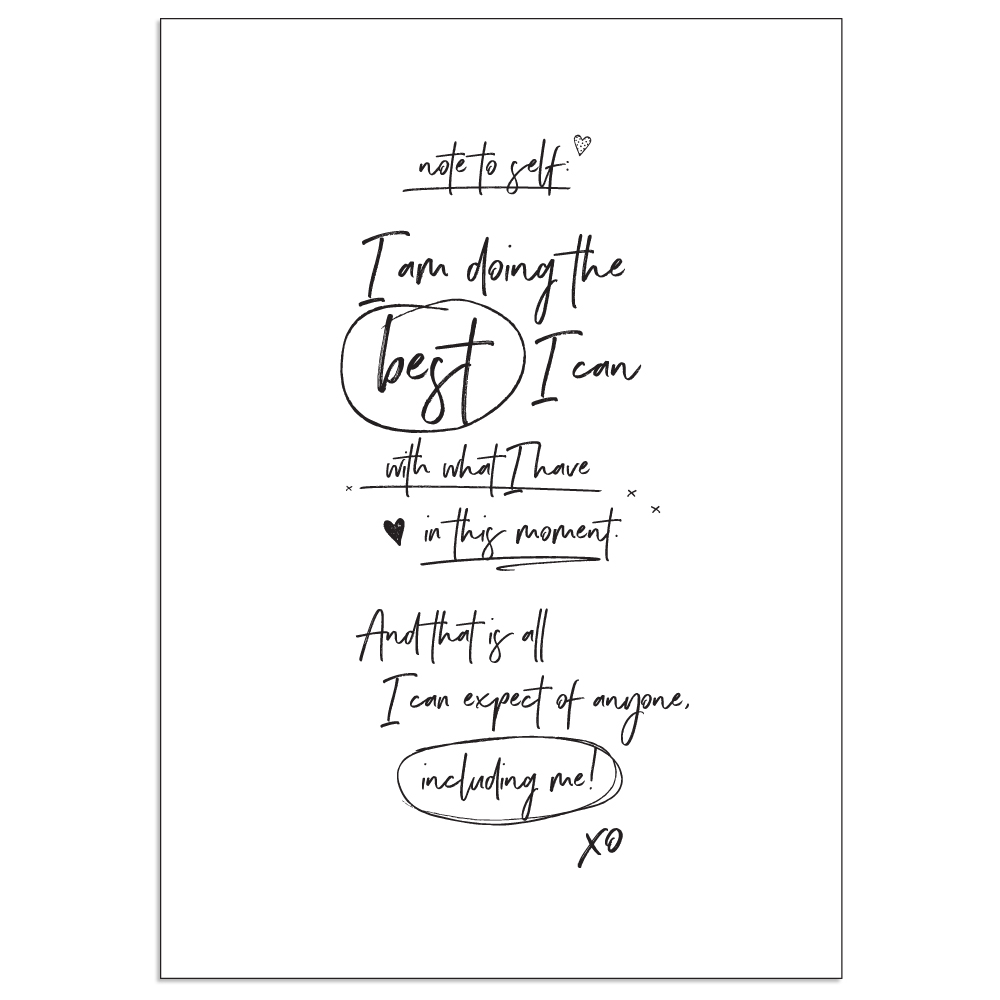 note to self:
I am doing the
best I can
with what I have
in this moment.
And that is all
I can expect of anyone,
including me!
xo